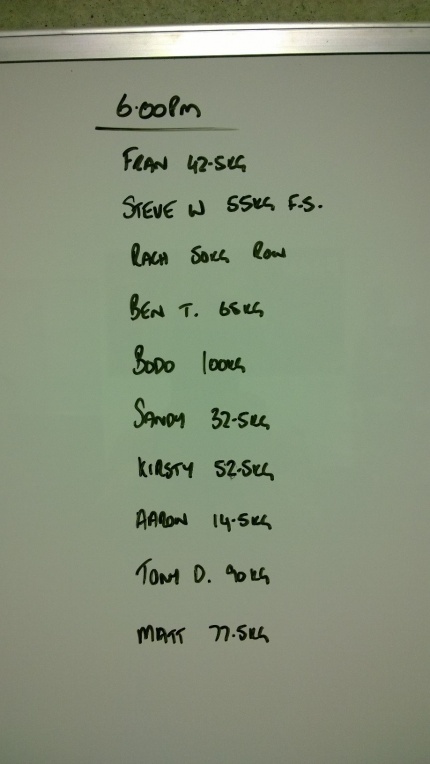 6.00PM
FRAN 42.5KG
STEVE W 55KG F.S.
RACH 50KG ROW
BEN T. 65KG
BODO 100KG
SANDY 32.5KG
KIRSTY 52.5KG
AARON 14.5KG
TONY D. 90KG
MATT 77.5KG